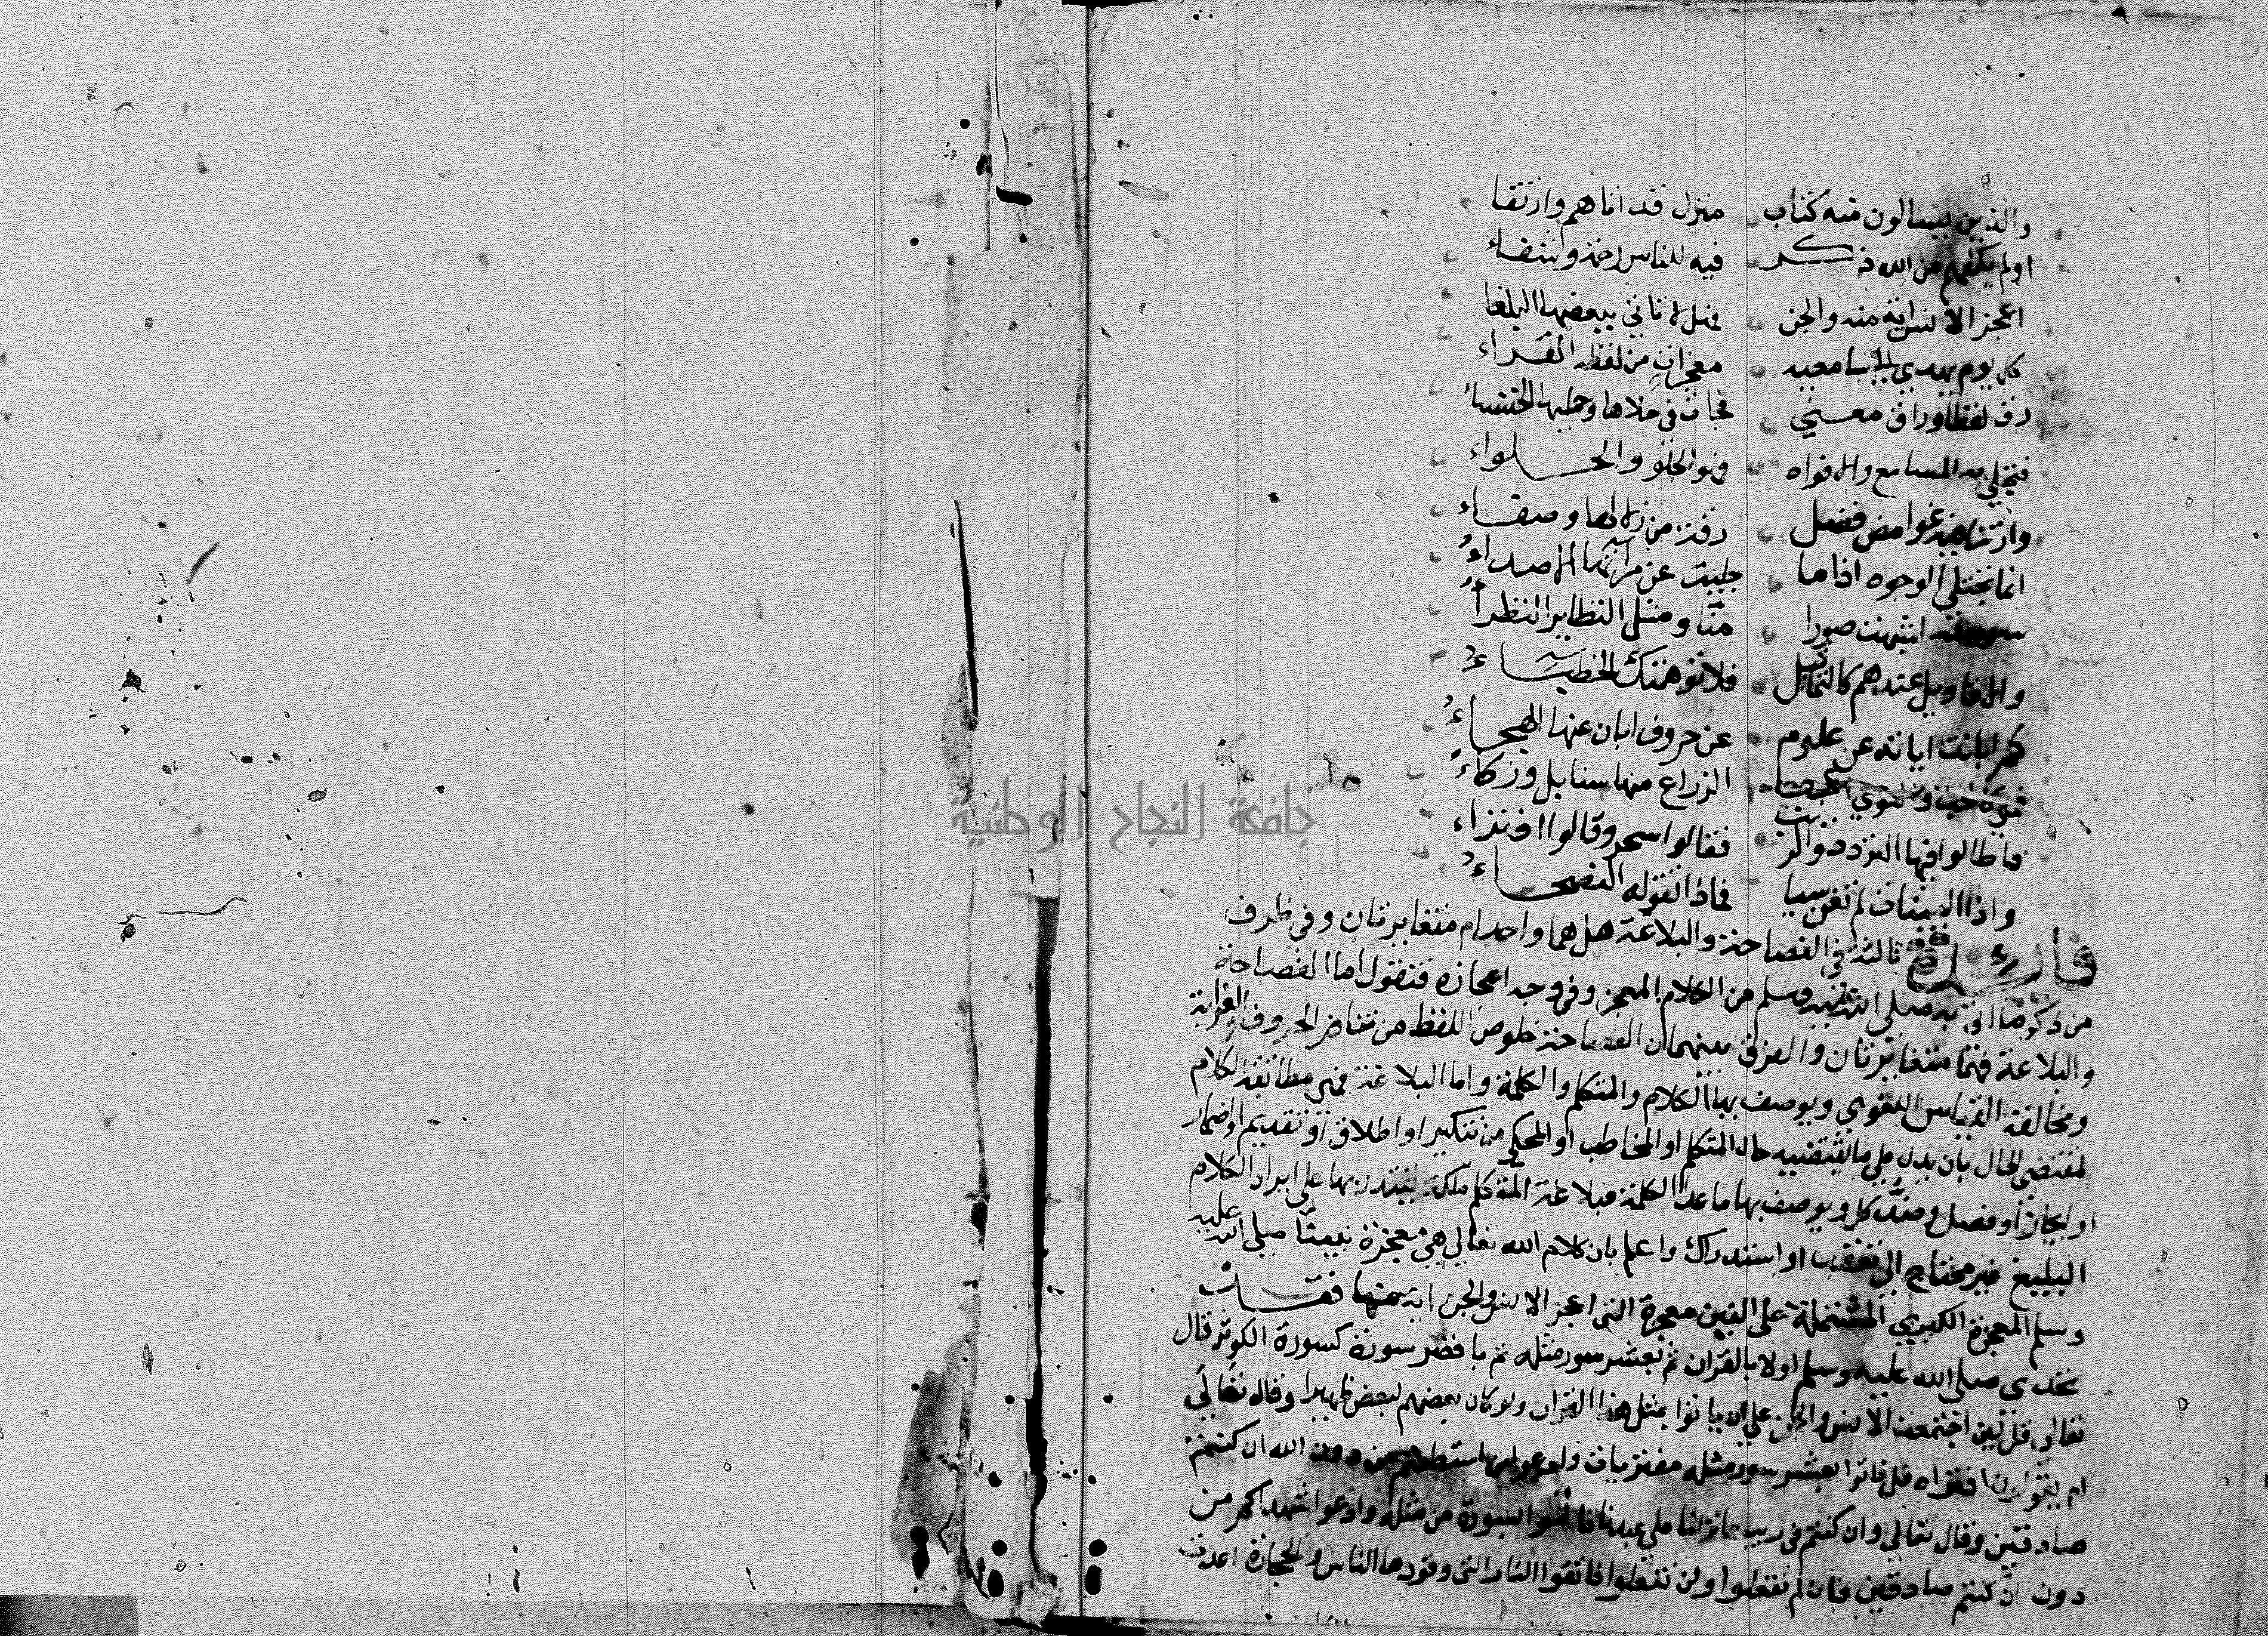 والذين يسالون منه كتاب منزل قد اتاهم وارتقا
اولم يكفهم من الله ذكر فيه للناس رحمة وشفاء
اعجز الانس اية منه والجن فهلا تاتي ببعضها البلغا
كل يوم يهدي الى سامعيه معجزات من لفظه القراء
رق لفظا وراق معني فجات في حلاها وحليها الخنساء
فتحلي به المسامع والافواه فهو الحلو والحلواء
وارتنا فيه غوامض فضل رقة من زلالها وصفاء
انما تجتلي الوجوه اذا ما جليت عن مراتها الاصداء
سور منه اشبهت صورا منا ومثل النظاير النظراء
والاقاويل عندهم كالتماثيل فلا توهمنك الخطباء
كم ابانت اياته عن علوم عن حروف ابان عنها الهجاء
الزراع منها سنابل وزكاء
فاطالوا فيها التردد والريب فقالوا سحر وقالوا افتراء
واذا البينات لم تغن شيا فماذا تقوله الفصحاء
فائدة ثالثة في الفصاحة والبلاغة هل هما واحد ام متغايرتان وفي ظرف
من ذكر ما اتي به صلي الله عليه وسلم من الكلام المعجز وفي وجه اعجازه فنقول اما الفصاحة
والبلاغة فهما متغايرتان والفرق بينهما ان الفصاحة خلوص اللفظ من تنافر الحروف والغرابة
ومخالفة القياس اللغوي ويوصف بها الكلام والمتكلم والكلمة واما البلاغة فهي مطابقة الكلام
لمقتضي الحال بان يدل علي ما يقتضيه حال المتكلم او المخاطب او المحكي من تنكير او اطلاق او تقديم او اضمار
او ايجاز او فصل وضد كل ويوصف بها ما عدا الكلمة فبلاغة المتكلم ملكة يقتدر بها علي ايراد الكلام
البليغ غير محتاج الي تعقب او استدراك واعلم بان كلام الله تعالي هي معجزة نبينا صلي الله عليه
وسلم المعجزة الكبري المشتملة علي الفين معجزة التي اعجز الانس والجن اية منها فقد
تحدي صلي الله عليه وسلم اولا بالقران ثم بعشر سور مثله ثم باقصر سورة كسورة الكوثر قال
تعالي قل لئن اجتمعت الانس والجن علي ان ياتوا بمثل هذا القران ولو كان بعضهم لبعض ظهيرا وقال تعالي
ام يقولون افتراه قل فاتوا بعشر سور مثله مفتريات وادعوا من استطعتم من دون الله ان كنتم
صادقين وقال تعالي وان كنتم في ريب مما نزلنا علي عبدنا فاتوا بسورة من مثله وادعوا شهداكم من
دون ان كنتم صادقين فان لم تفعلوا ولن تفعلوا فاتقوا النار التي وقودها الناس والحجارة اعدت
جامعة النجاح الوطنية